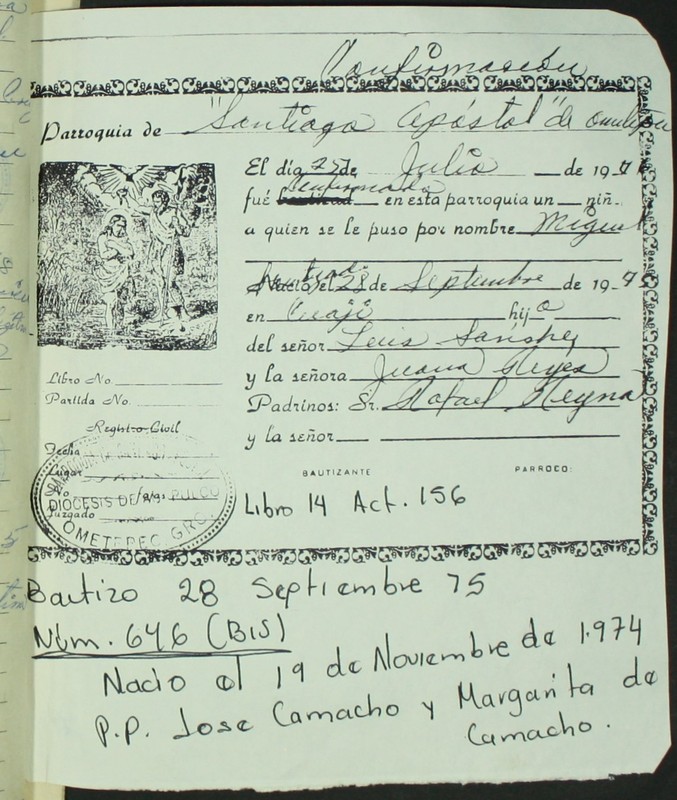 Confirmación
Parroquia de "Santiago Apóstol" de
El día 25 de Julio de 197
fué confirmado en esta parroquia un niñ
a quien se le puso por nombre Miguel
el 28 de Septiembre de 19 75
en hijo
del señor Luis Sánchez
y la señora Juana Reyes
Padrinos: Sr. Rafael Reyna
y la señor
Libro No.
Partida No.
Registro Civil
Fecha
Lugar
No.
Juzgado
DIOCESIS DE
OMETEPEC, GRO.
BAUTIZANTE PARROCO:
Libro 14 Act. 156
Bautizo 28 Septiembre 75
Núm. 646 (BIS)
Nacio el 19 de Noviembre de 1.974
P.P. Jose Camacho y Margarita de
Camacho.